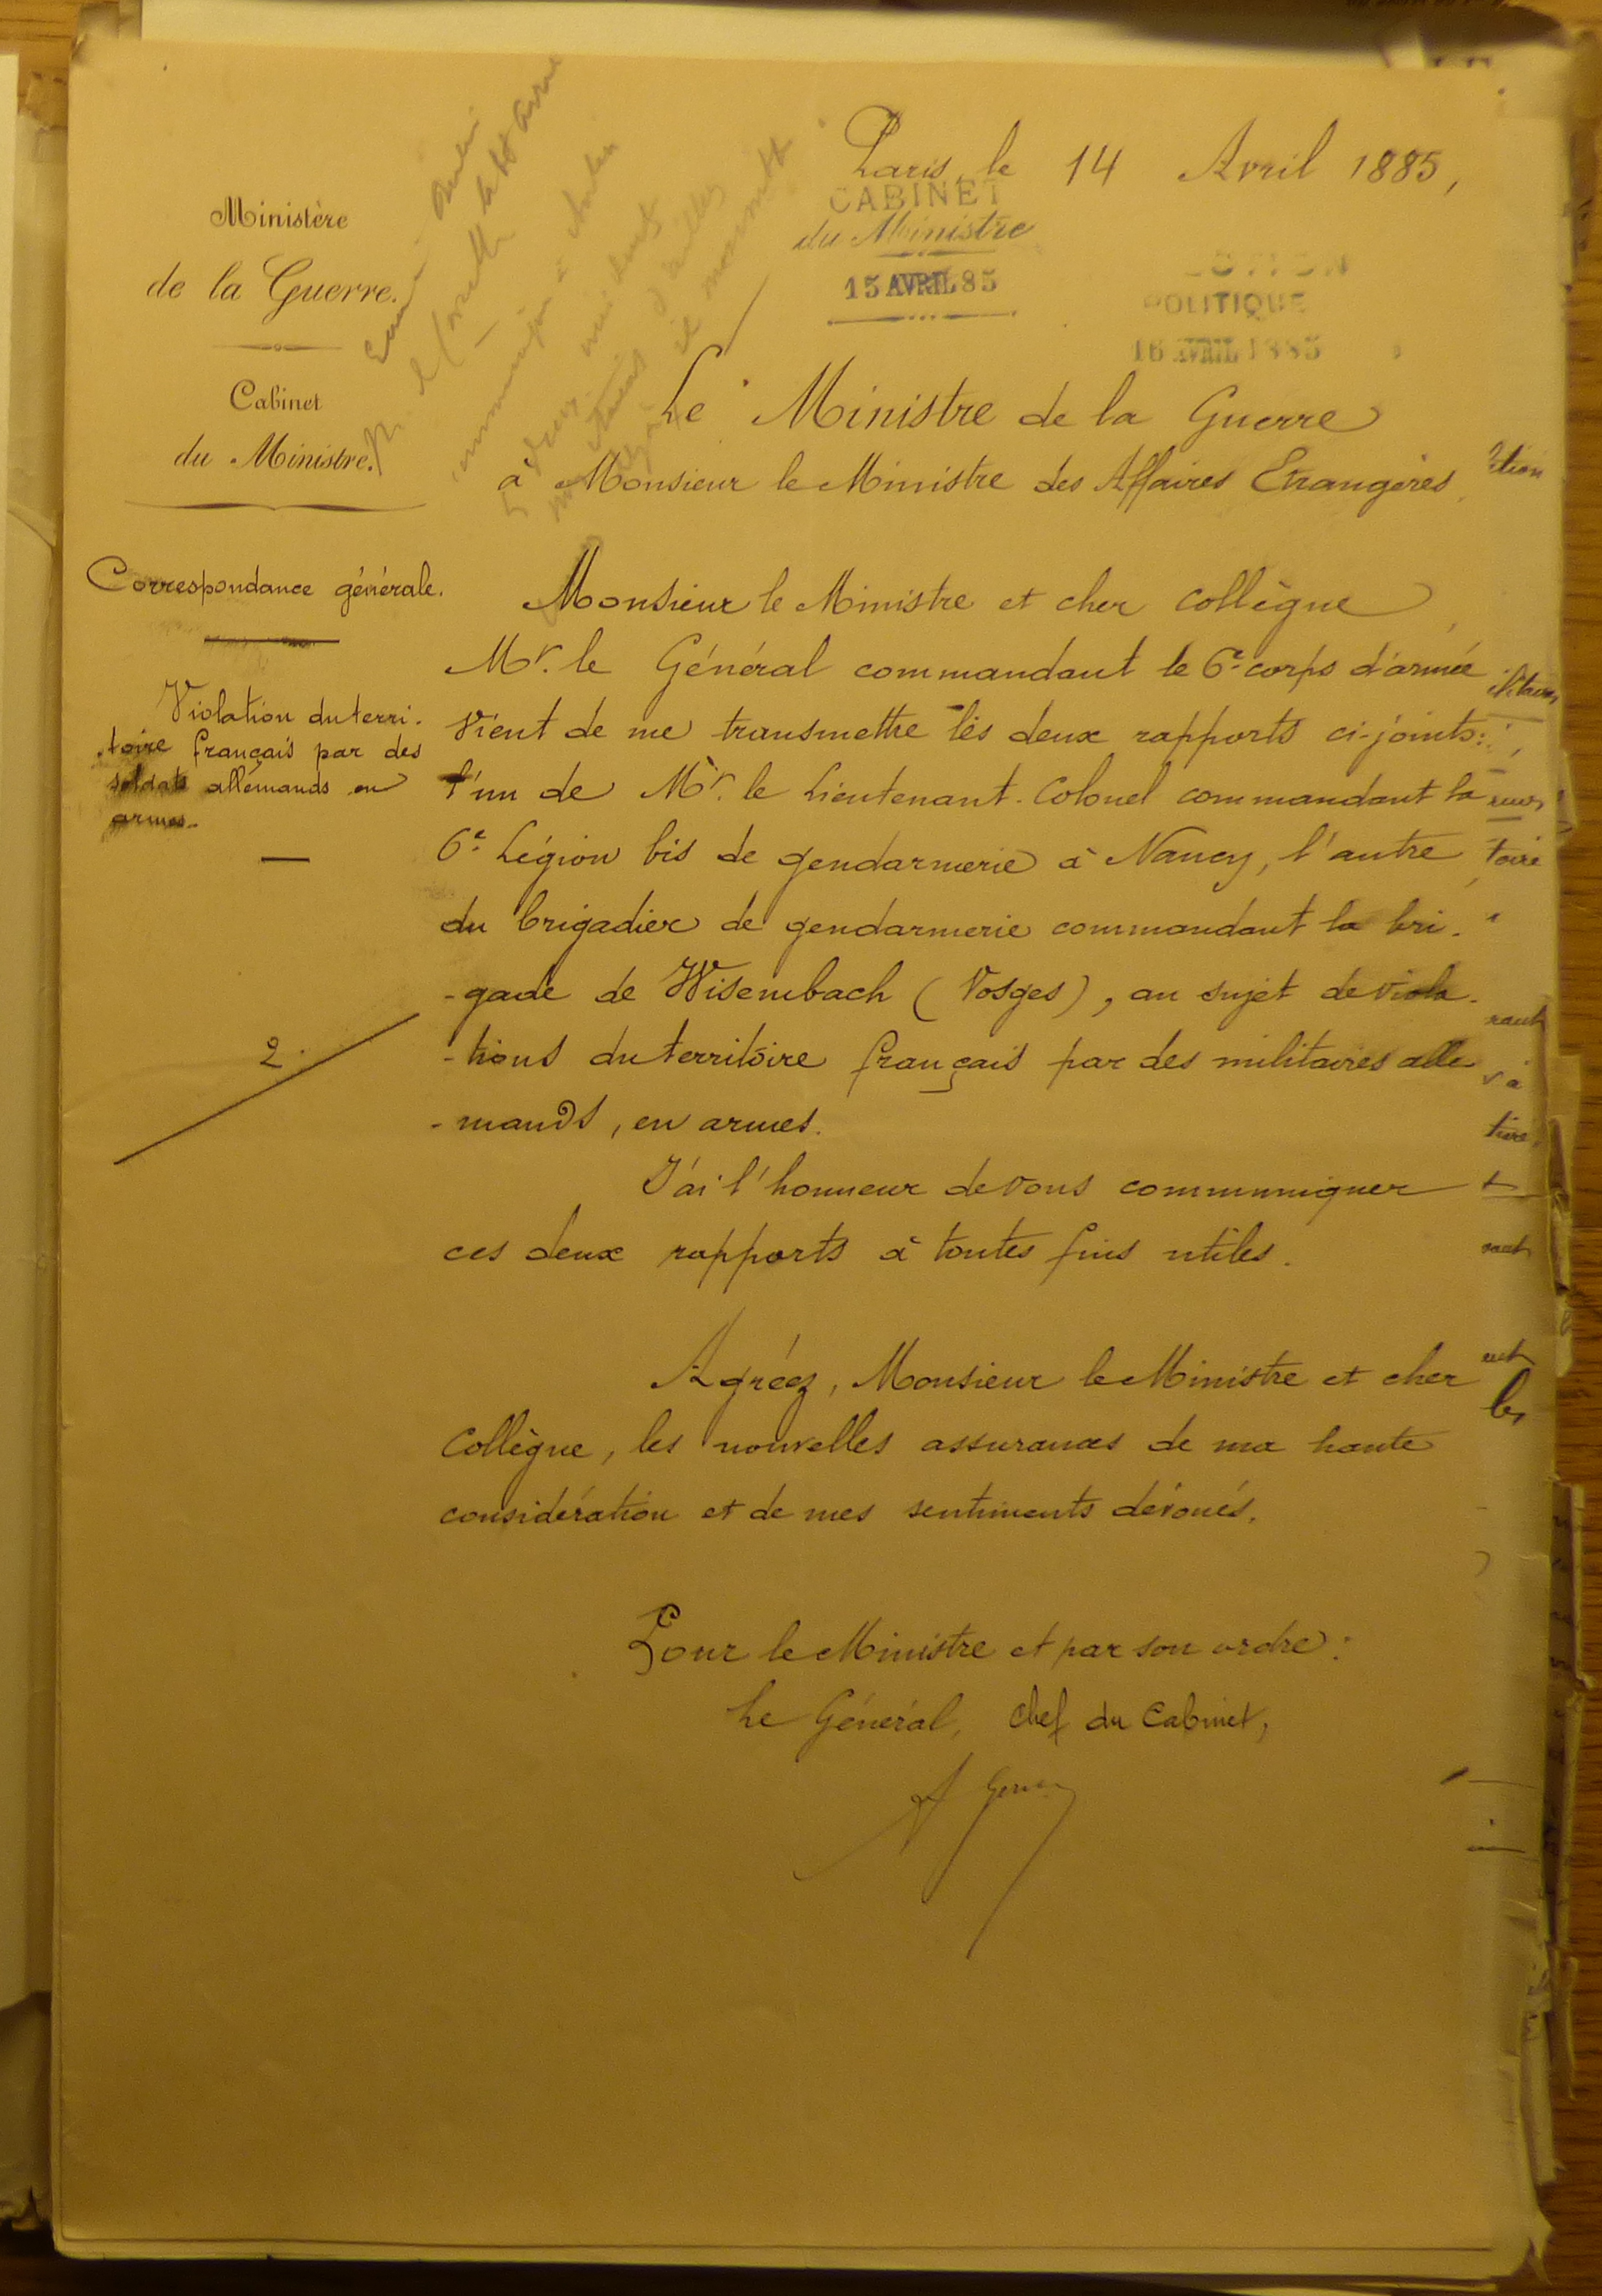 Paris, le 14 Avril 1885,
CABINET
du Ministre
15 AVRIL 85
POLITIQUE
16 AVRIL 1885
Ministère
de la Guerre.
Cabinet
du Ministre.
Correspondance générale.
Violation du terri-
-toire français par des
soldats allemands en
armes.
2.
Le Ministre de la Guerre
à Monsieur le Ministre des Affaires Etrangères.
Monsieur le Ministre et cher collègue,
Mr. le Général commandant le 6e corps d'armée
vient de me transmettre les deux rapports ci-joints:
l'un de Mr. le Lieutenant-Colonel commandant la
6e Légion bis de gendarmerie à Nancy, l'autre
du brigadier de gendarmerie commandant la bri-
-gade de Wisembach (Vosges), au sujet de viola-
-tions du territoire français par des militaires alle-
-mands, en armes.
J'ai l'honneur de vous communiquer
ces deux rapports à toutes fins utiles.
Agréez, Monsieur le Ministre et cher
Collègue, les nouvelles assurances de ma haute
considération et de mes sentiments dévoués.
Pour le Ministre et par son ordre:
Le Général, Chef du Cabinet,